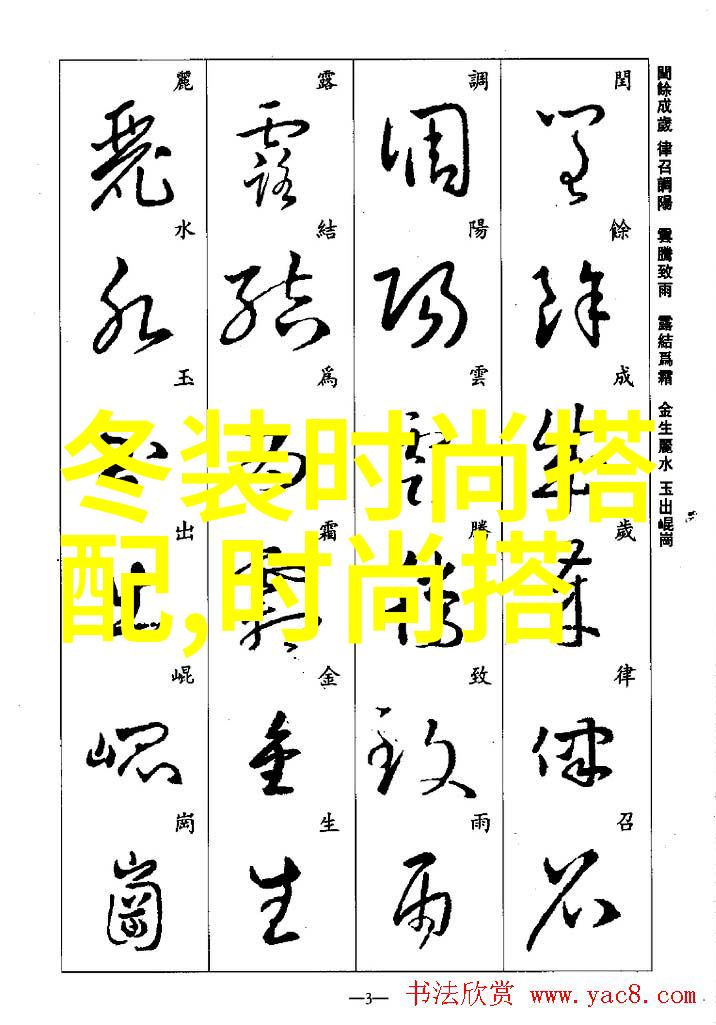 閏餘成歲 律召調陽 雲騰致雨 露結爲霜 金生麗水 玉出崐崗
閏餘成歲律召
調陽雲騰致雨
露結爲霜金生
麗水玉出崐崗
冬装时尚搭
配,时尚搭
—3—
书法欣赏 www.yac8.com